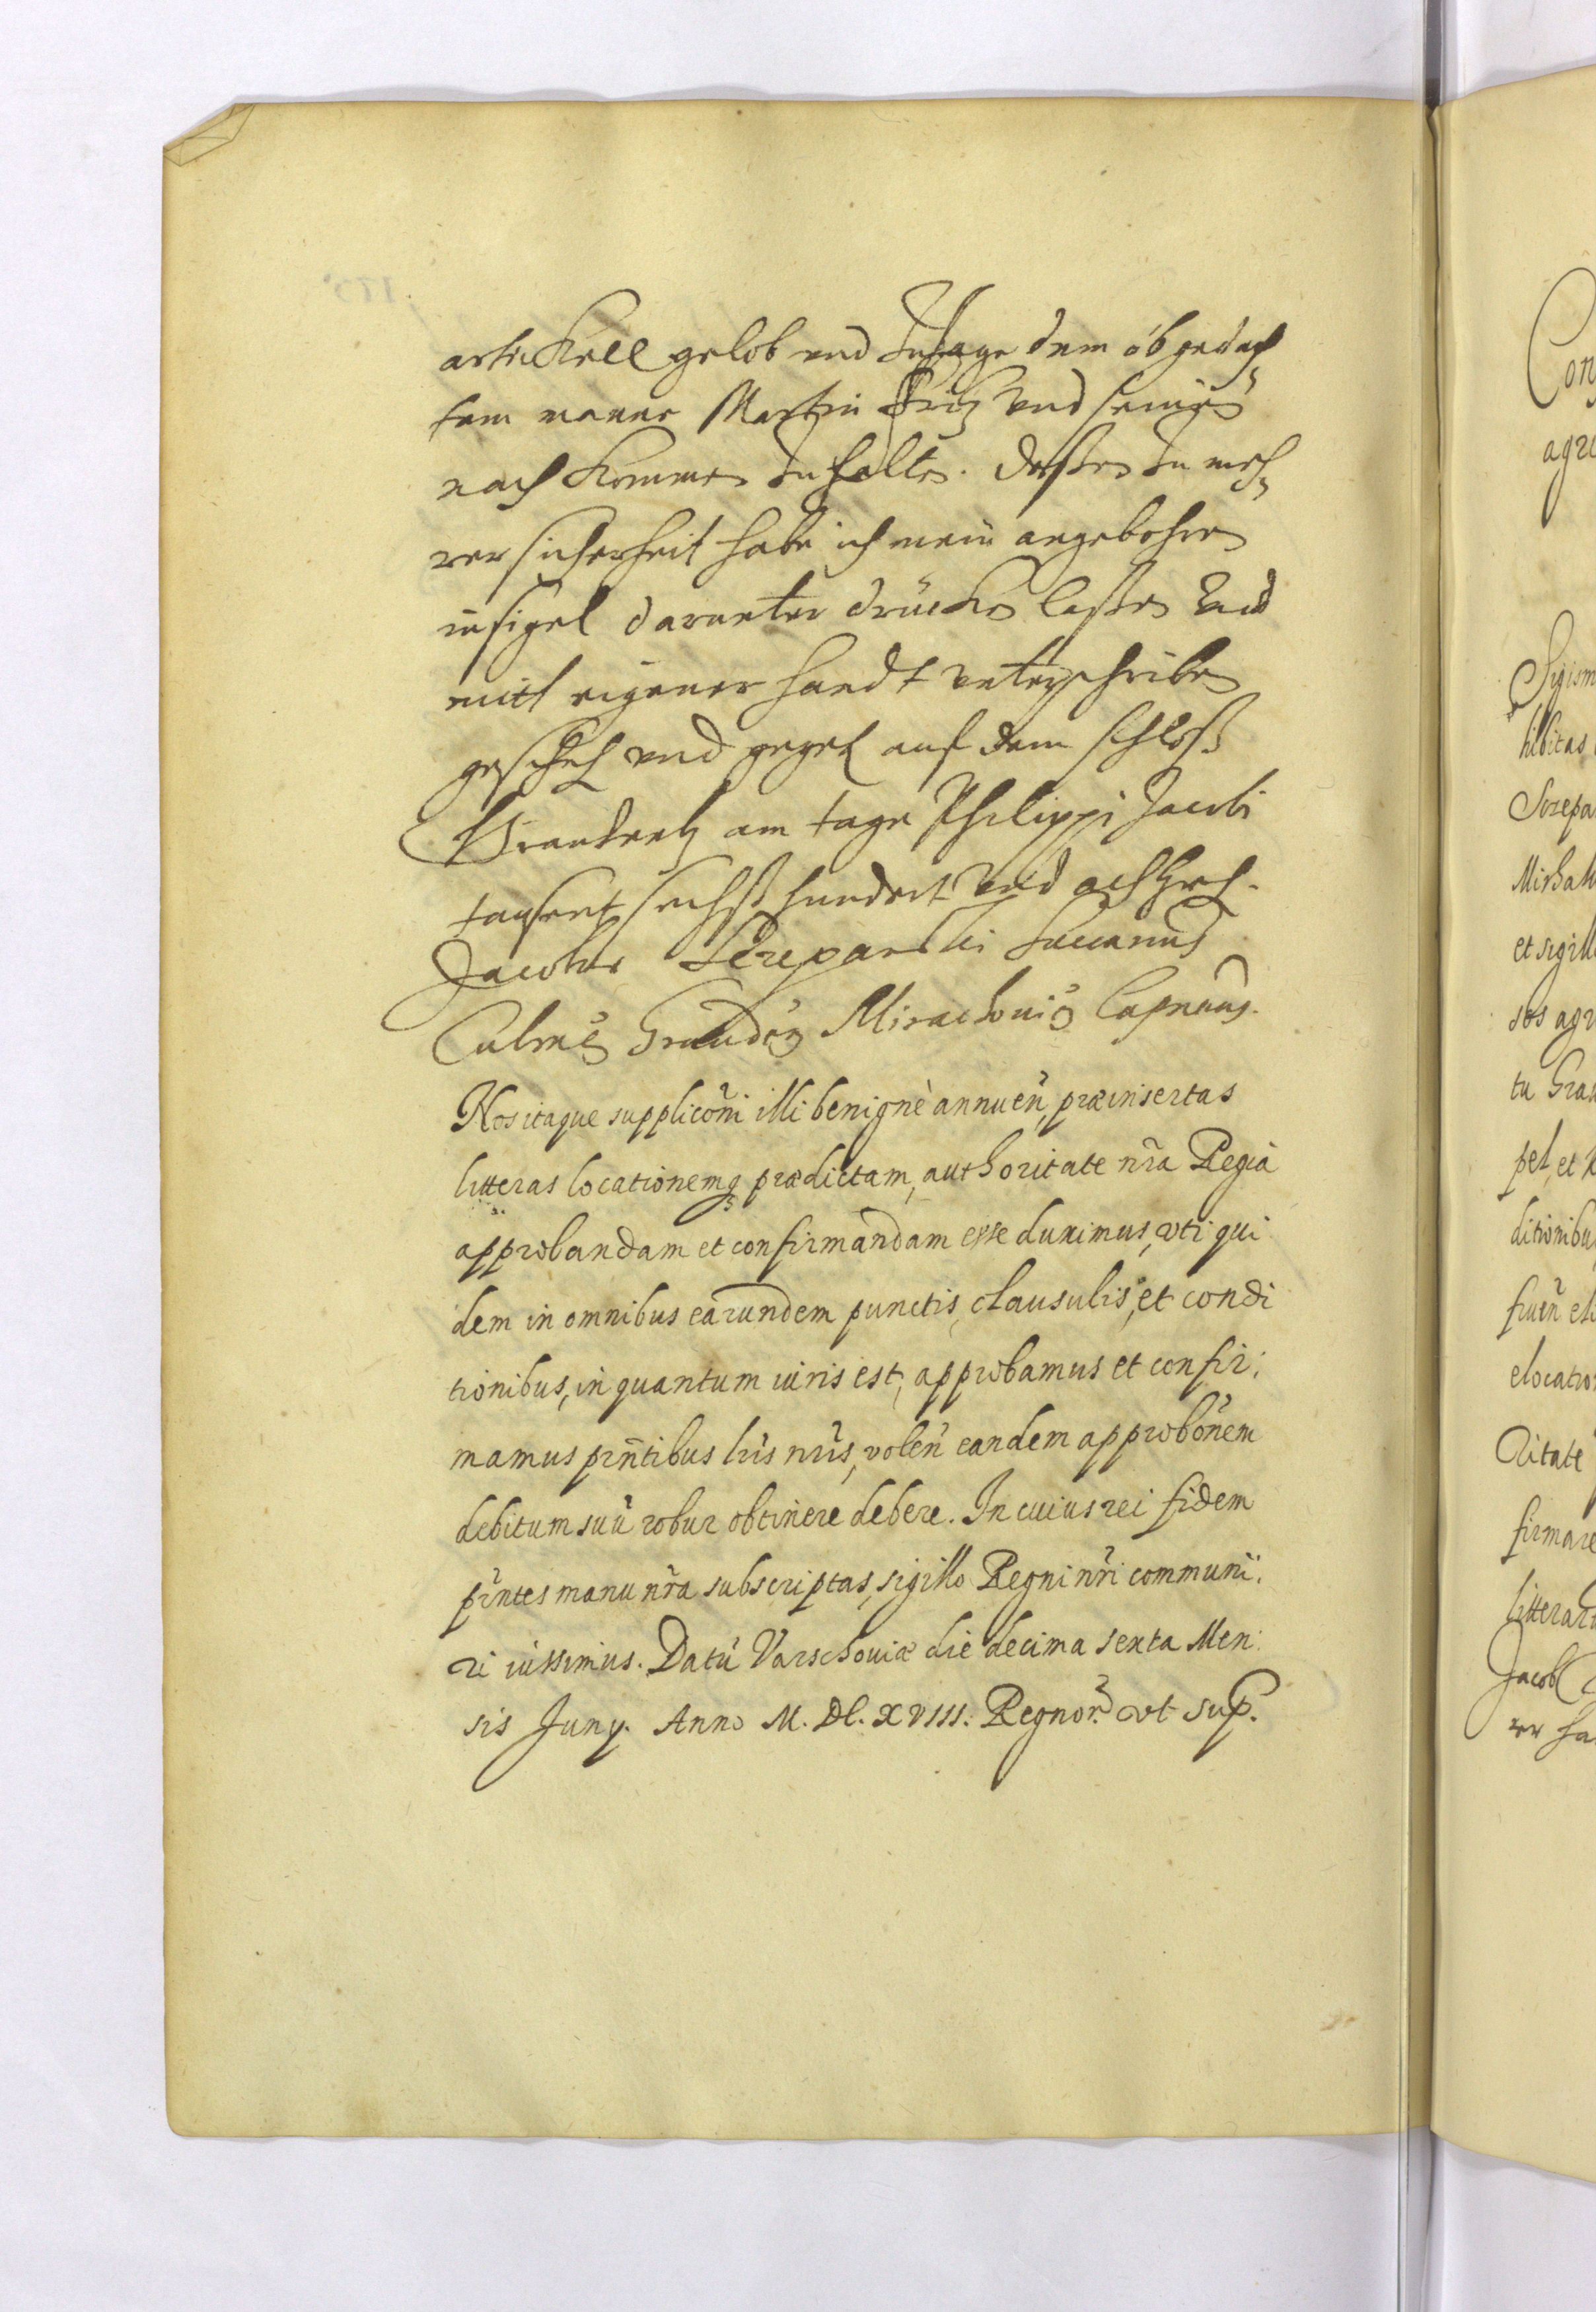 artickell gelob und zusage dem obgedach
tem manne Martin Fritz und seinen
nach kommen zu halten. dessen zu meh
rer sicherheit habe ich mein angebohren
insigel darunter drücken lassen und
mitt eigener handt unterschriben
gescheh und gegeben auf dem schloss
Graudentz am tage Philippi Jacobi
tausent sechss hundert und achtzeh.
Jacobus Sczepanski Succam
Culmen Grauden Mirachouien Capneus.
Nos itaque suppliconi illi benignè annuen, præinsertas
litteras locationemq prædictam, authoritate nra Regia
approbandam et confirmandam esse duximus, vti qui
dem in omnibus earundem punctis, clausulis, et condi
tionibus, in quantum iuris est, approbamus et confir:
mamus prntibus lris nris, volen eandem approbonem
debitum suu robur obtinere debere. In cuius rei fidem
prntes manu nra subscriptas, sigillo Regni nri communi:
ri iussimus. Datu Varschouiæ die decima sexta Men:
sis Juny. Anno M. DC. XVIII. Regnor. vt sup.
Con
agr
Sigism
hibitas
Sczepa
Mirhah
et sigill
sos agr
tu Grau
pet, et
ditionibu
fruen
elocatio
ritate
firmare
litteraru
Jacob
rer ha